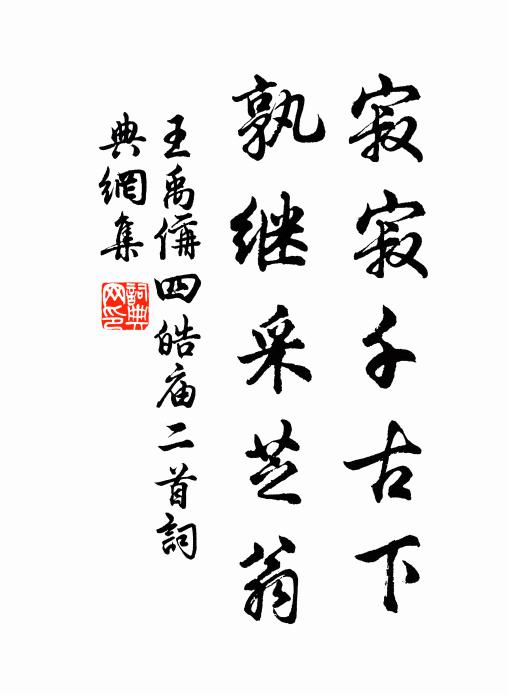 寂寂千古下
孰继采芝翁
王禹偁四皓庙二首詞
典網集
詞典网印